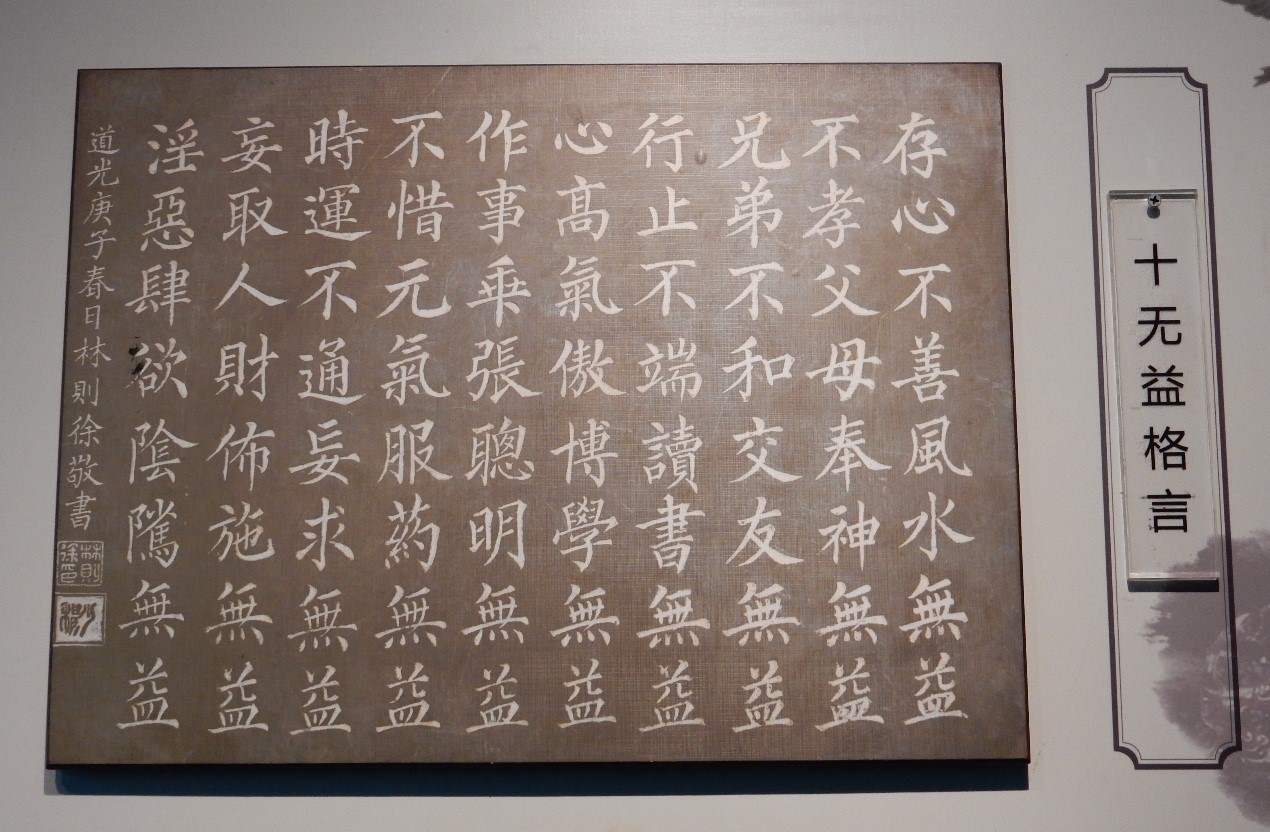 十无益格言
存心不善風水無益
不孝父母奉神無益
兄弟不和交友無益
行止不端讀書無益
心高氣傲博學無益
作事乖張聰明無益
不惜元氣服药無益
時運不通妄求無益
妄取人財佈施無益
淫惡肆欲陰隲無益
道光庚子春日林則徐敬書
林則徐印